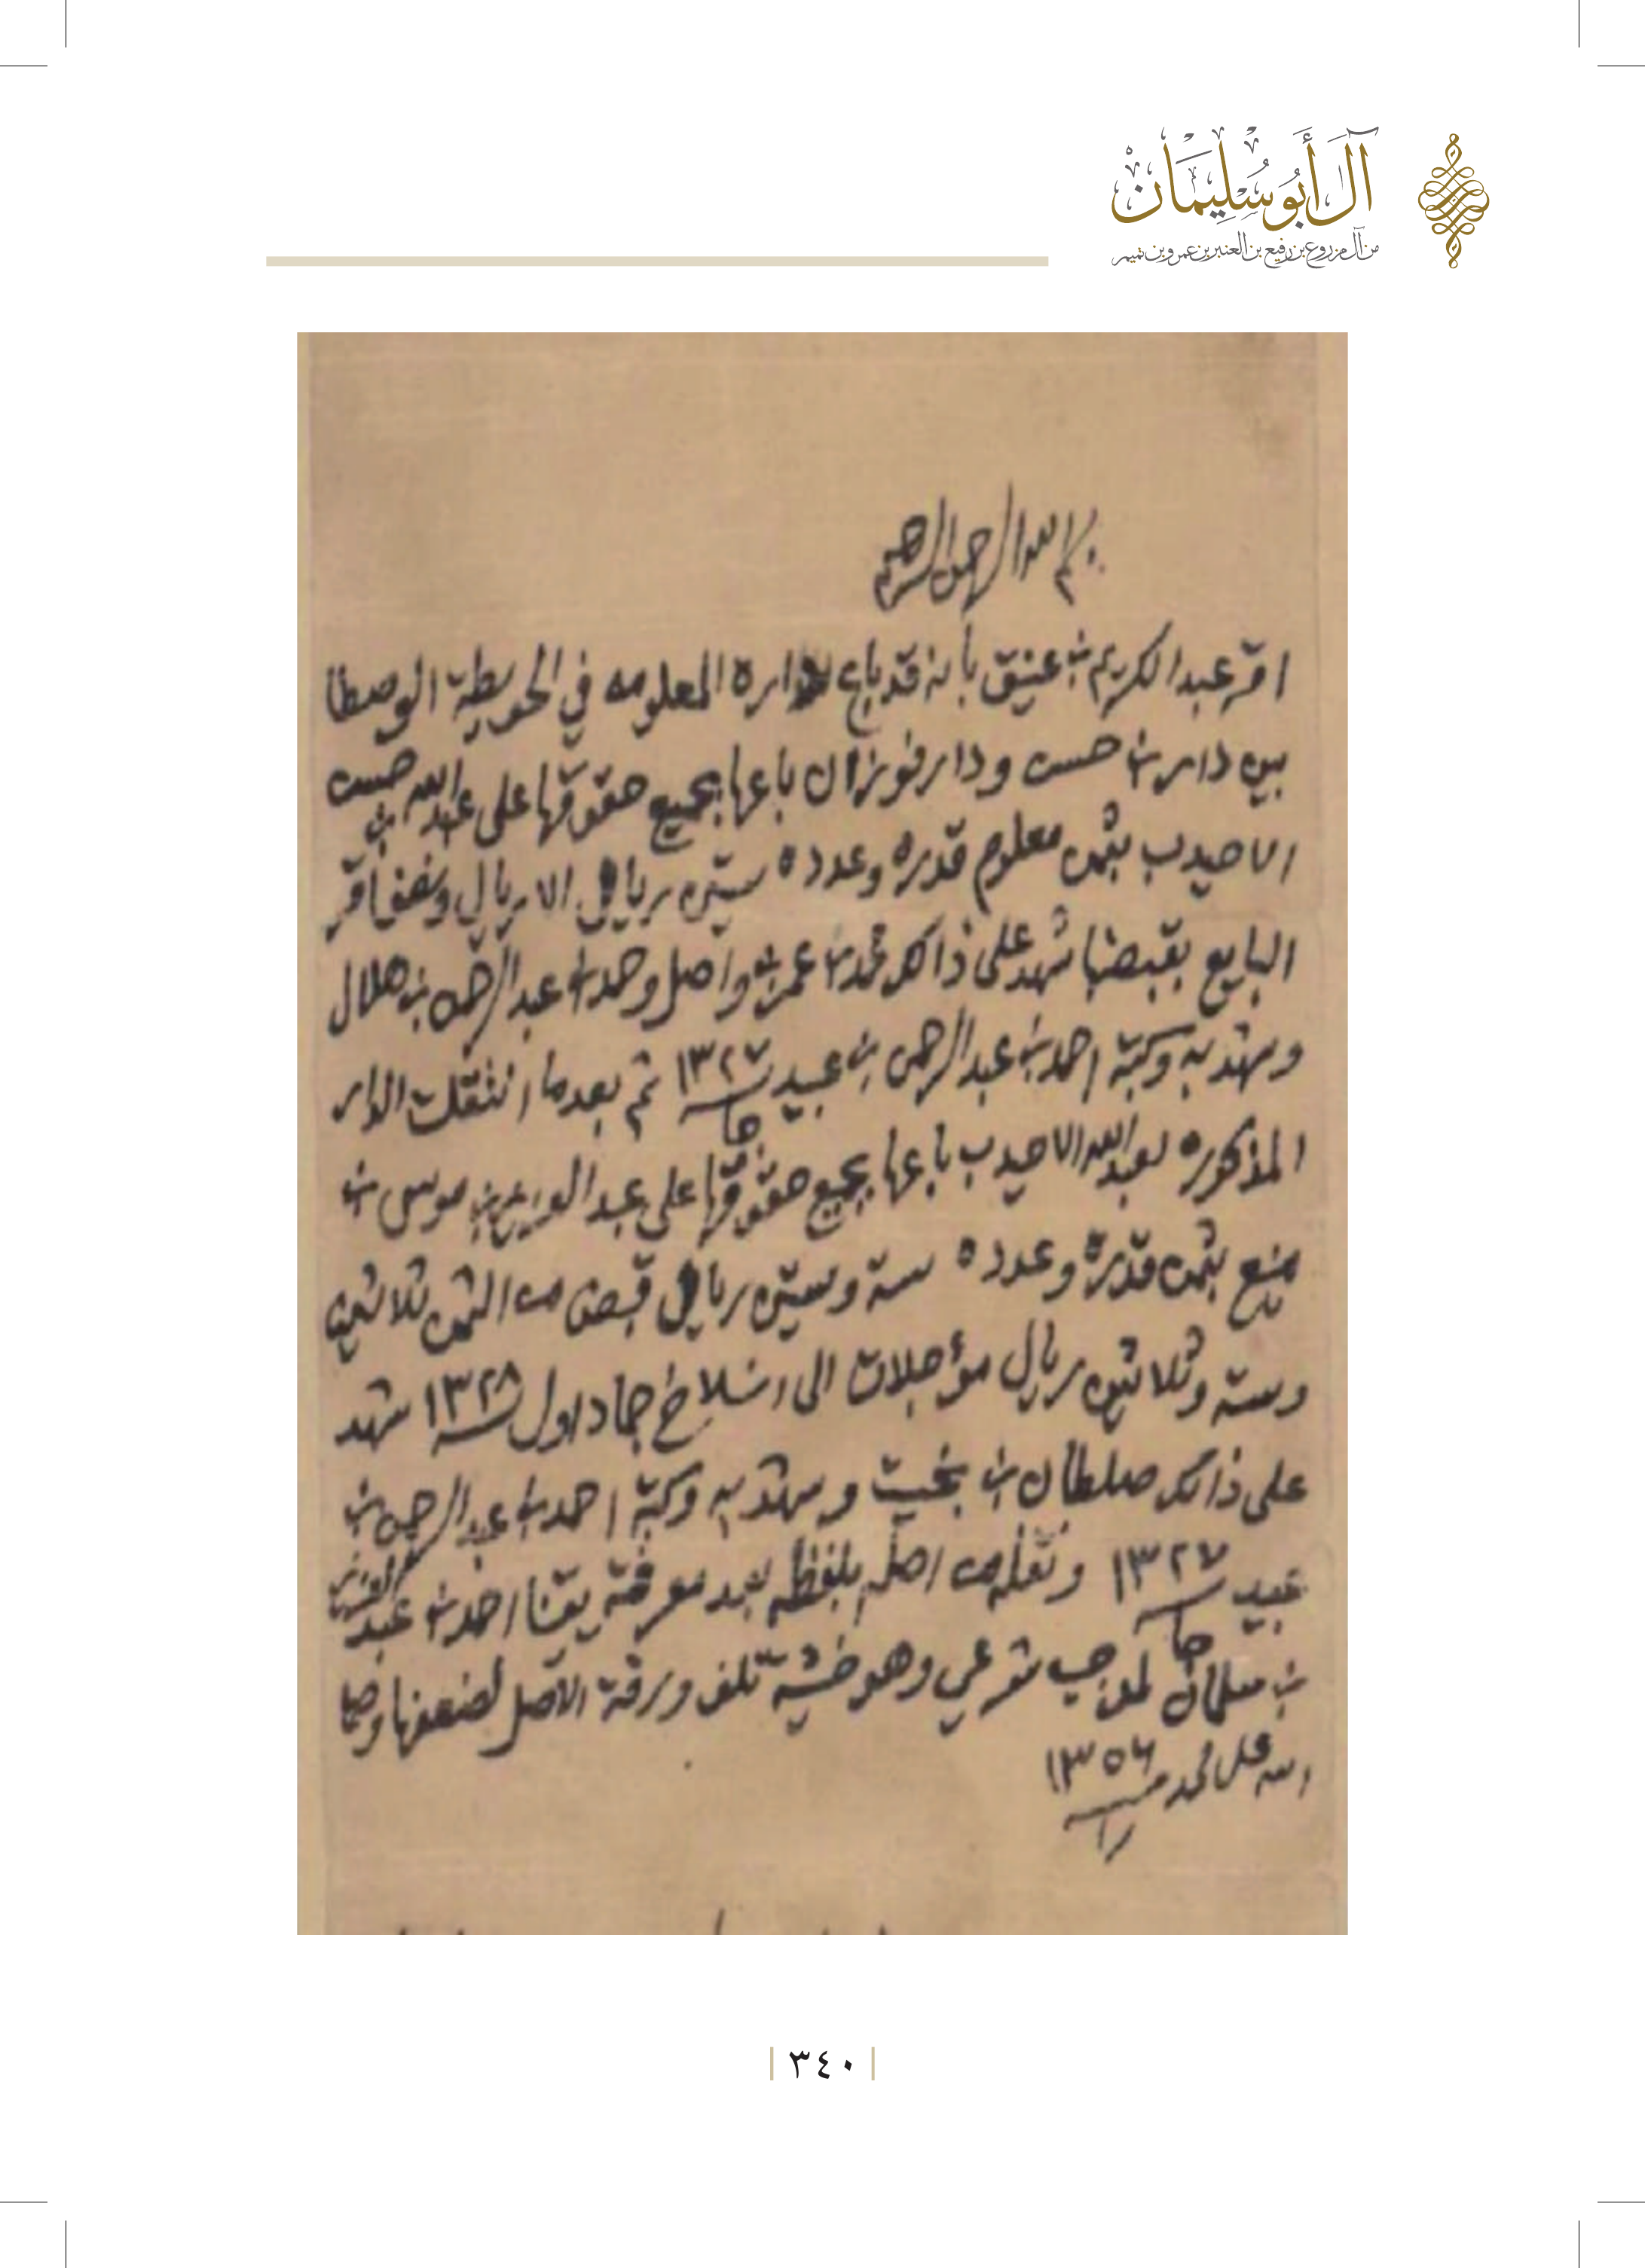 آل أبو سليمان
من آل مزروع بن رفيع بن العنبر بن عمرو بن تميم
بسم الله الرحمن الرحيم
اقر عبد الكريم بن عتيق بأنه قد باع داره المعلومه في الحويطة الوصطا
بين دار بن حسن ودار فوزان باعها بجميع حقوقها على عبد الله بن حسن
الاحيدب بثمن معلوم قدره وعدده ستين ريال الا ريال ونصف اقر
البايع بقبضها شهد على ذالك محمد بن عمر بن واصل وحمد بن عبد الرحمن بن هلال
وشهد به وكتبه احمد بن عبد الرحمن بن عبيد ١٣٢٧ ثم بعدما انتقلت الدار
المذكوره لعبد الله الاحيدب باعها بجميع حقوقها على عبد العزيز بن موسى بن
منيع بثمن قدره وعدده ستة وستين ريال قبض من الثمن ثلاثين
وستة وثلاثين ريال مؤجلات الى انسلاخ جماد اول ١٣٢٨ شهد
على ذالك صلطان بن بخيت وشهد به وكتبه احمد بن عبد الرحمن بن
عبيد ١٣٢٧ ونقله من اصله بلفظه بعد معرفته يقنا احمد بن عبد العزيز
بن سلمان لموجب شرعي وهو خشية تلف ورقة الاصل لضعفها وصلى
الله على محمد ١٣٥٦
٣٤٠